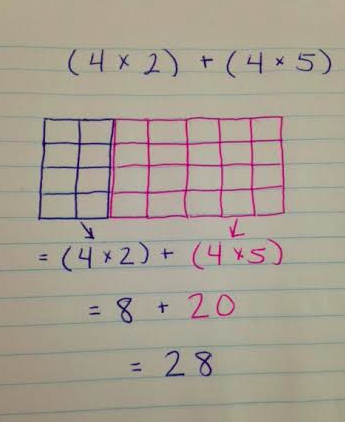 (4 × 2) + (4 × 5)
= (4 × 2) + (4 × 5)
= 8 + 20
= 28